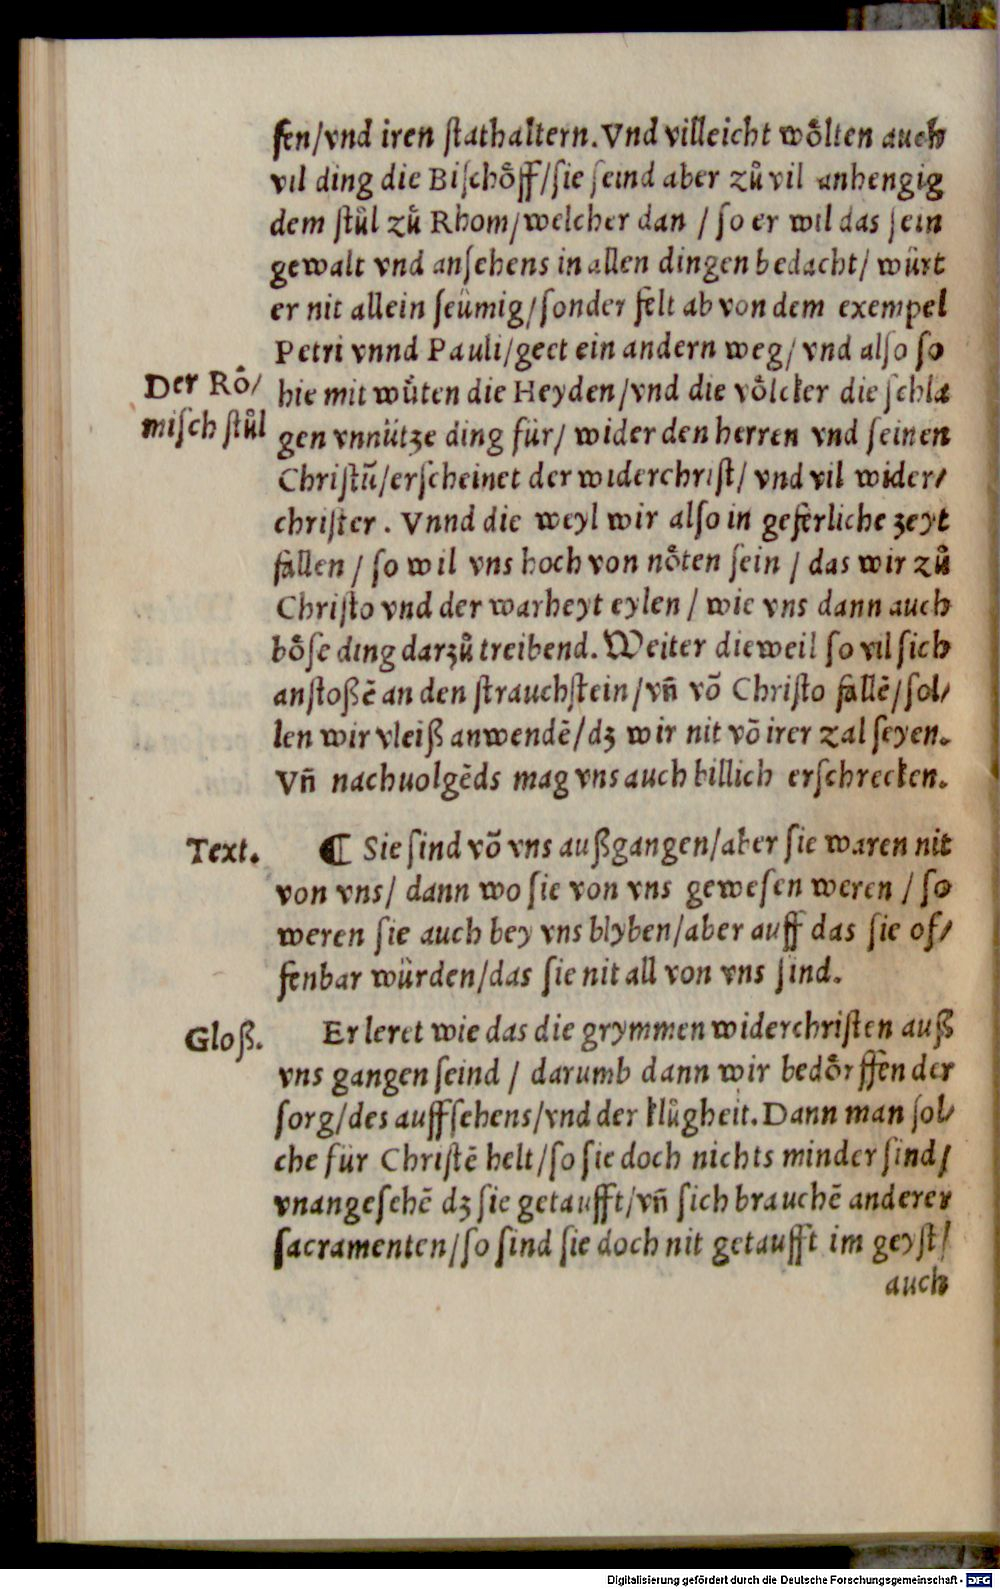 fen/vnd iren ſtathaltern. Vnd villeicht woͤlten auch
vil ding die Biſchoͤff/ſie ſeind aber zuͦ vil anhengig
dem ſtuͦl zuͦ Rhom/welcher dan / ſo er wil das ſein
gewalt vnd anſehens in allen dingen bedacht/ wuͤrt
er nit allein ſeümig/ſonder felt ab von dem exempel
Petri vnnd Pauli/geet ein andern weg/ vnd alſo ſo
Der Roͤ/
miſch ſtuͦl
hie mit wuͤten die Heyden/vnd die voͤlcker die ſchla
gen vnnütze ding für/ wider den herren vnd ſeinen
Chriſtū/erſcheinet der widerchriſt/ vnd vil wider/
chriſter . Vnnd die weyl wir alſo in geferliche zeyt
fallen / ſo wil vns hoch von noͤten ſein / das wir zuͦ
Chriſto vnd der warheyt eylen / wie vns dann auch
boͤſe ding darzuͦ treibend. Weiter dieweil ſo vil ſich
anſtoßē an den ſtrauchſtein/vn̄ vō Chriſto fallē/ſol/
len wir vleiß anwendē/dʒ wir nit vō irer zal ſeyen.
Vn̄ nachuolgēds mag vns auch billich erſchrecken.
Text.
¶ Sie ſind vō vns außgangen/aber ſie waren nit
von vns/ dann wo ſie von vns geweſen weren / ſo
weren ſie auch bey vns blyben/aber auff das ſie of/
fenbar würden/das ſie nit all von vns ſind.
Gloß.
Er leret wie das die grymmen widerchriſten auß
vns gangen ſeind / darumb dann wir bedoͤrffen der
ſorg/des auffſehens/vnd der kluͦgheit. Dann man ſol/
che für Chriſtē helt/ſo ſie doch nichts minder ſind/
vnangeſehē dʒ ſie getaufft/vn̄ ſich brauchē anderer
ſacramenten/ſo ſind ſie doch nit getaufft im geyſt/
auch
Digitalisierung gefördert durch die Deutsche Forschungsgemeinschaft - DFG